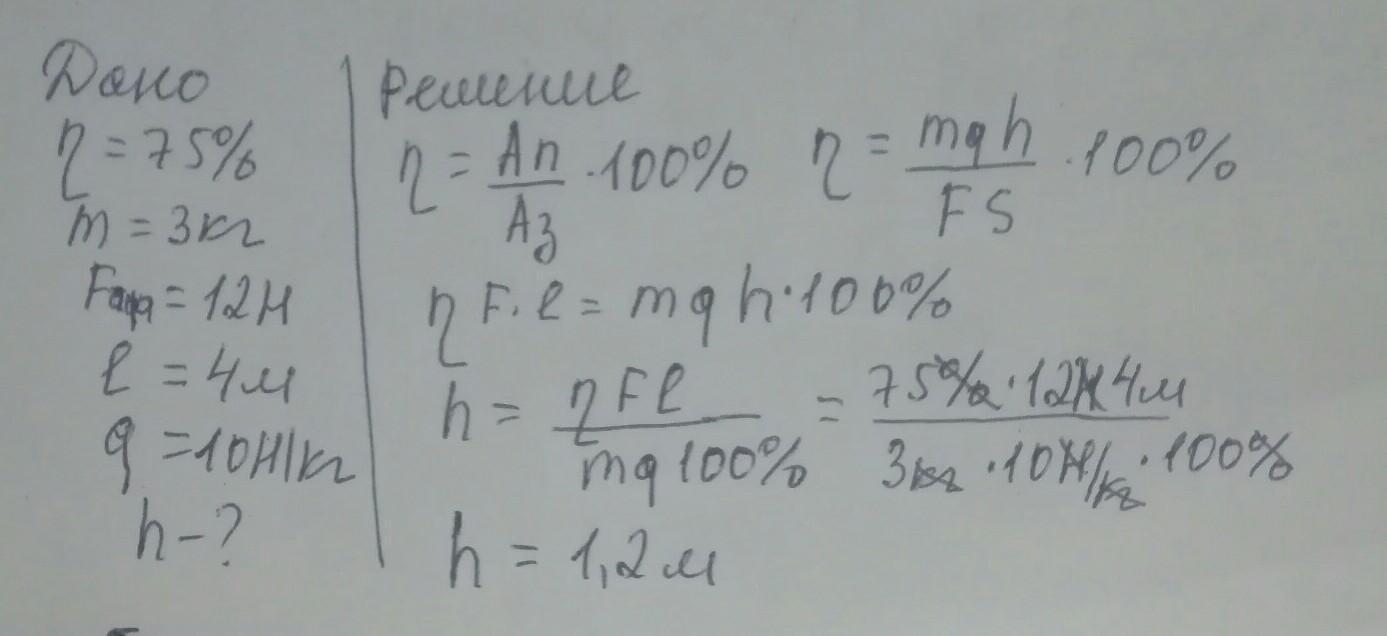 Дано
η = 75%
m = 3кг
F = 12Н
l = 4м
g = 10Н/кг
h - ?
Решение
η = Ап/Аз · 100% η = mgh/FS · 100%
η F · l = mgh · 100%
h = ηFl/mg100% = 75% · 12Н 4м/3кг · 10Н/кг · 100%
h = 1,2м